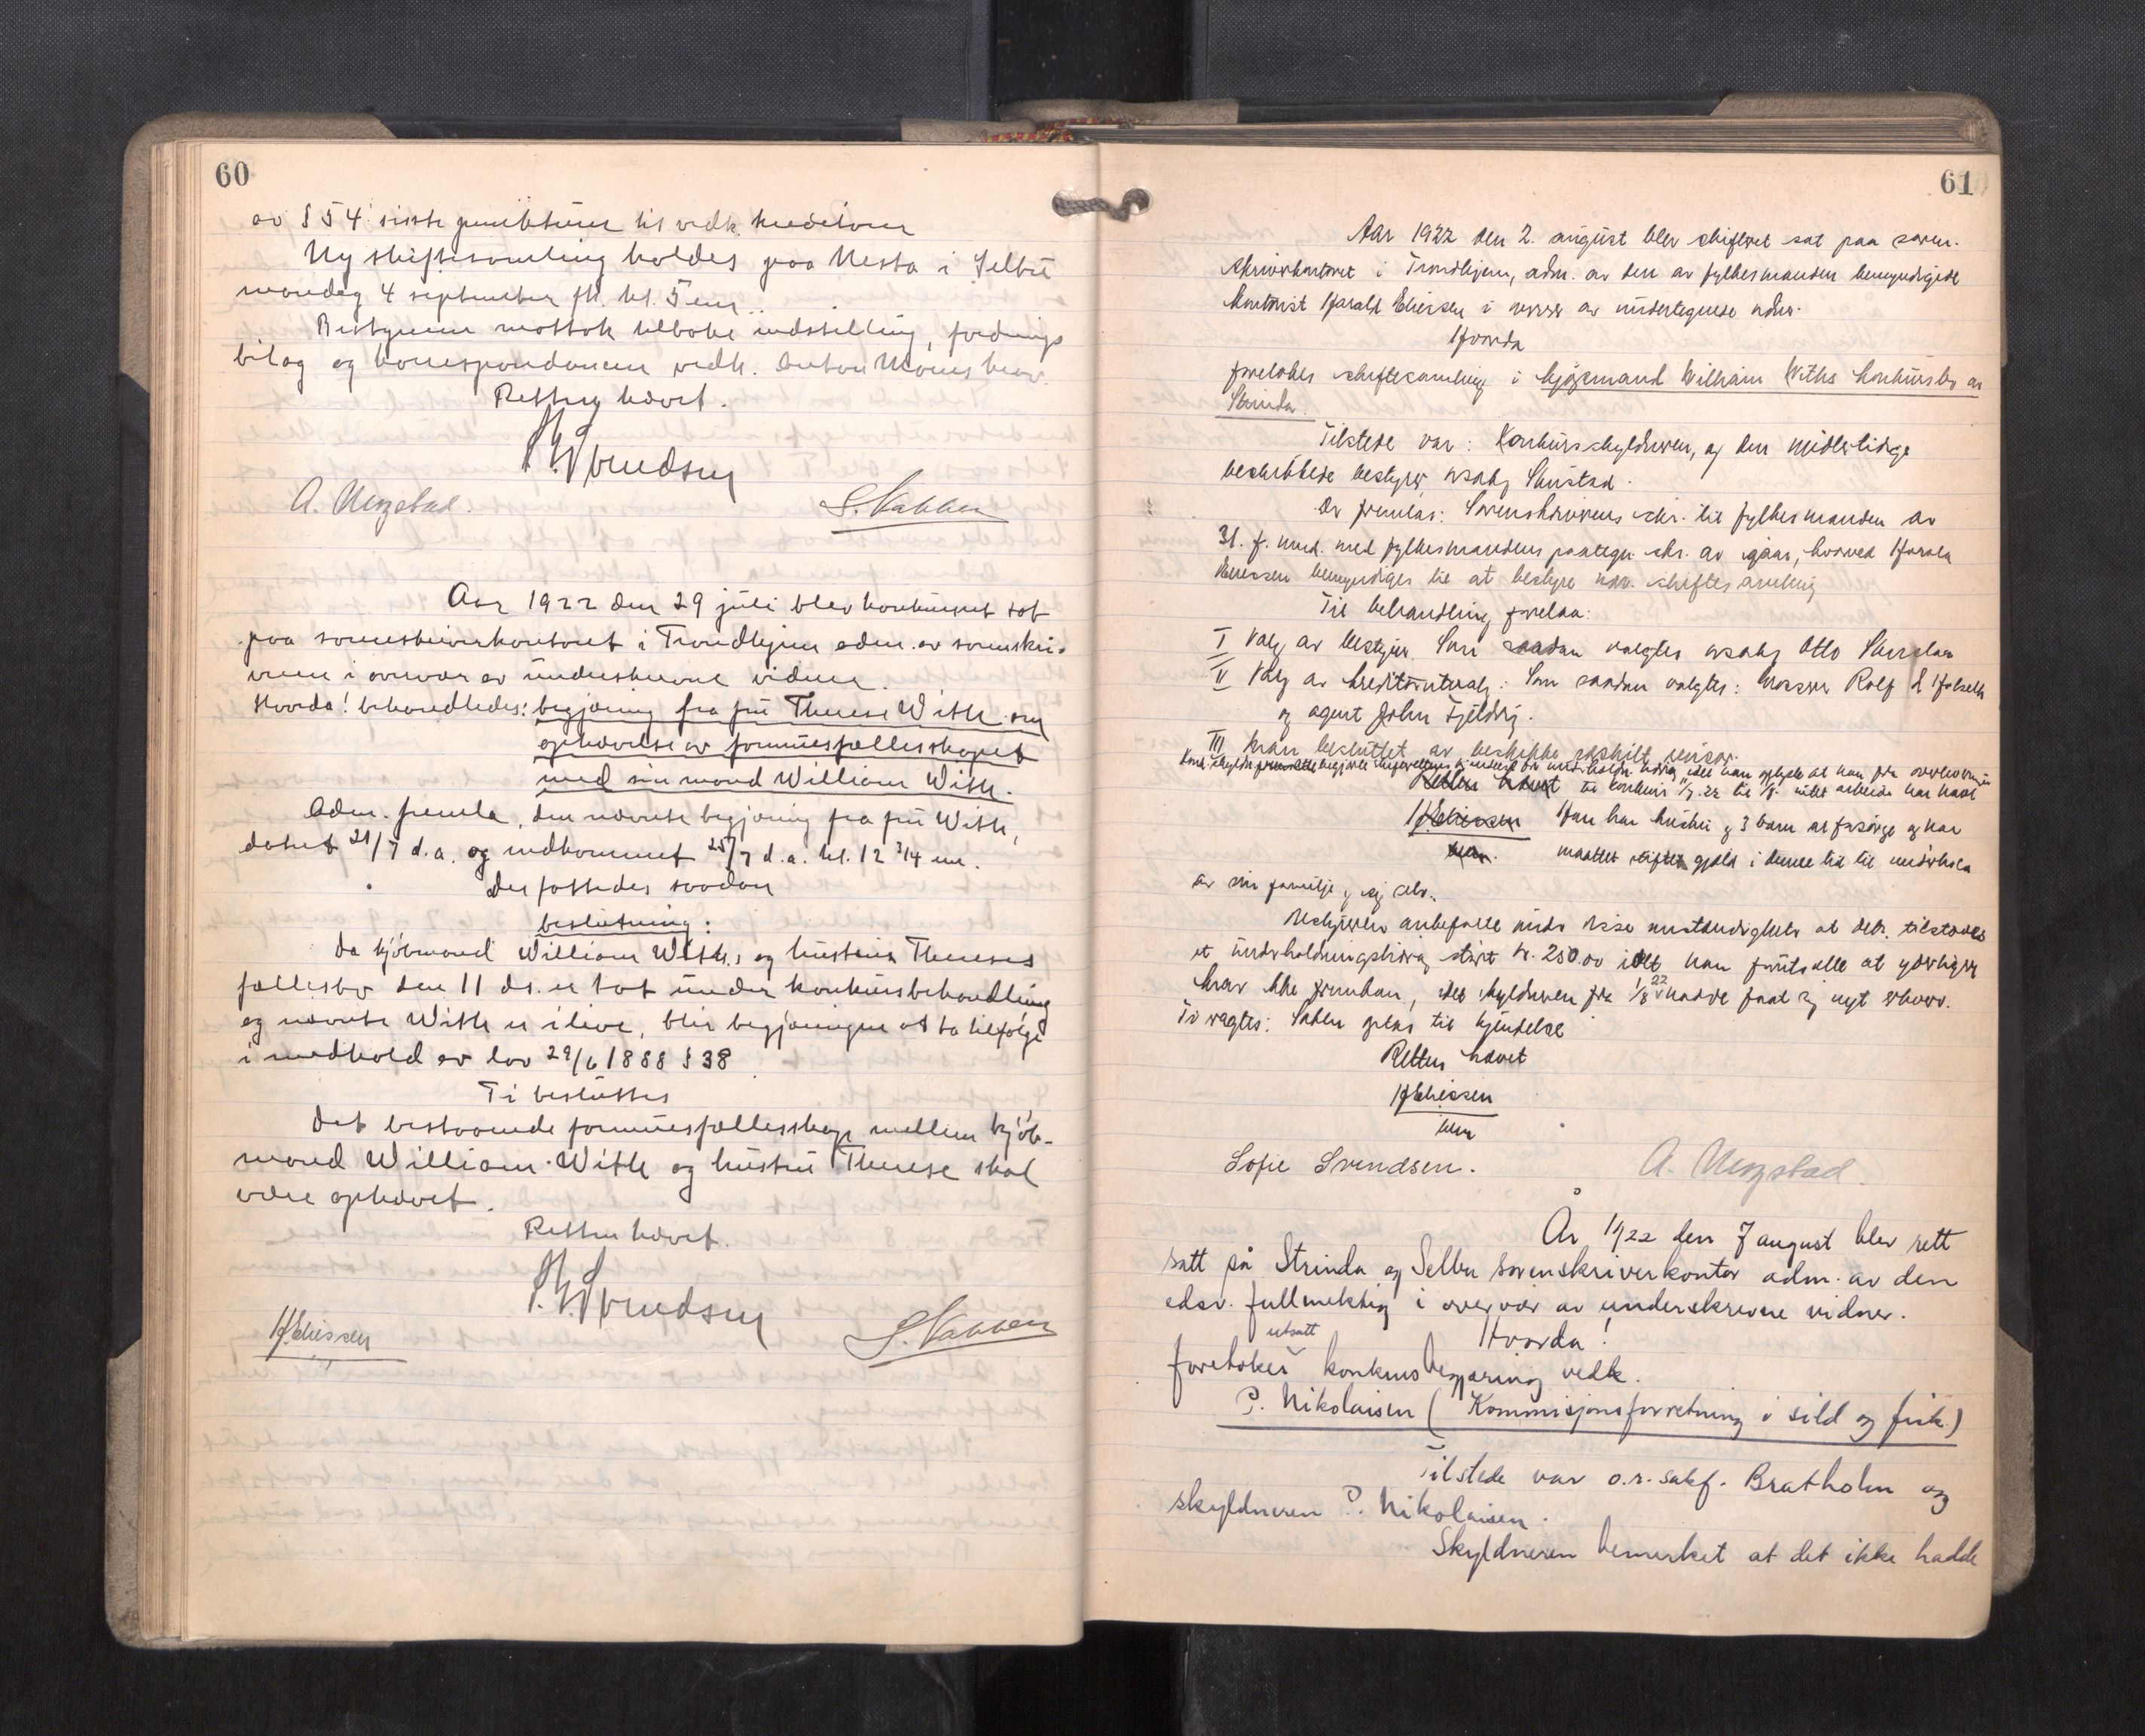 60
av § 54 siste punktum til vedk. kreditorer
Ny skiftesamling holdes paa Nesta i Selbu
mandag 4 september fk. kl. 5 em.
Bestyreren mottok tilbake indstilling, fordrings
bilag og korrespondancen vedk. Anton Moens krav.
Retten hævet.
A. Mozstad.
Aar 1922 den 29 juli blev konkursret sat
paa sorenskriverkontoret i Trondhjem adm. av sorenskri-
veren i overvær av underskrevne vidner.
Hvorda! behandledes: begjæring fra fru Therese With om
ophævelse av formuesfællesskapet
med sin mand William With.
Adm. fremla den nævnte begjæring fra fru With,
datert 21/7 d.a. og indkommet 25/7 d.a. kl. 12 3/4 em.
Der fattedes saadan
beslutning:
Da kjøbmand William With's og hustru Thereses
fællesbo den 11 ds. er tat under konkursbehandling
og nævnte With er ilive, blir begjæringen at ta tilfølge
i medhold av lov 29/6 1888 § 38
Ti besluttes
Det bestaaende formuesfællesskap mellem kjøb-
mand William With og hustru Therese skal
være ophævet.
Retten hævet.
H Eliessen
61
Aar 1922 den 2. august blev skifteret sat paa soren-
skriverkontoret i Trondhjem, adm. av den av fylkesmanden bemyndigede
kontorist Harald Eliessen i nærvær av undertegnede vidner.
Hvorda
foretokes skiftesamling i kjøpmand William Withs konkursbo av
Strinda.
Tilstede var: Konkursskyldneren, og den midlertidige
beskikkede bestyrer, orsakf Skustad.
Der fremlas: Sorenskriverens skr. til fylkesmanden av
31. f. mnd. med fylkesmandens paategn. skr. av igaar, hvorved Harald
Eliessen bemyndiges til at bestyre nærv. skiftesamling
Til behandling forelaa:
I Valg av bestyrer. Som saadan valgtes orsakf Otto
II Valg av kreditorutvalg: Som saadan valgtes: Rolf L Holseth
og agent John Fjeldvig.
III Man besluttet av beskikke særskilt revisor.
Konk. skyldn begjærte skifterettens kjendelse for underholdn. bidrag, idet han oplyste at han fra overleveringen
Retten hævet til konkurs 1/7. 22 til 1/8. intet arbeide har havt
H Eliessen Han har hustru og 3 barn at forsørge og har
maattet stifte gjæld i denne tid til underhold
av sin familje og sig selv.
Bestyreren anbefalte under disse omstændigheter at deb. tilstodes
et underholdningsbidrag stort kr. 250.00 idet han forutsatte at yderligere
krav ikke fremkom, idet skyldneren fra 1/8 22 hadde faat sig nyt erhverv.
To vagtes: Saken optas til kjendelse
Retten hævet
H Eliessen
Sofie Svendsen.
A. Mozstad.
År 1922 den 7 august blev rett
satt på Strinda og Selbu sorenskriverkontor adm. av den
edsv. fullmektig i overvær av underskrevne vidner.
Hvorda!
foretokes utsatt konkursbegjæring vedk.
P. Nikolaisen (Kommisjonsforretning i sild og fisk)
Tilstede var o.r. sakf. Bratholm og
skyldneren P. Nikolaisen.
Skyldneren bemerket at det ikke hadde